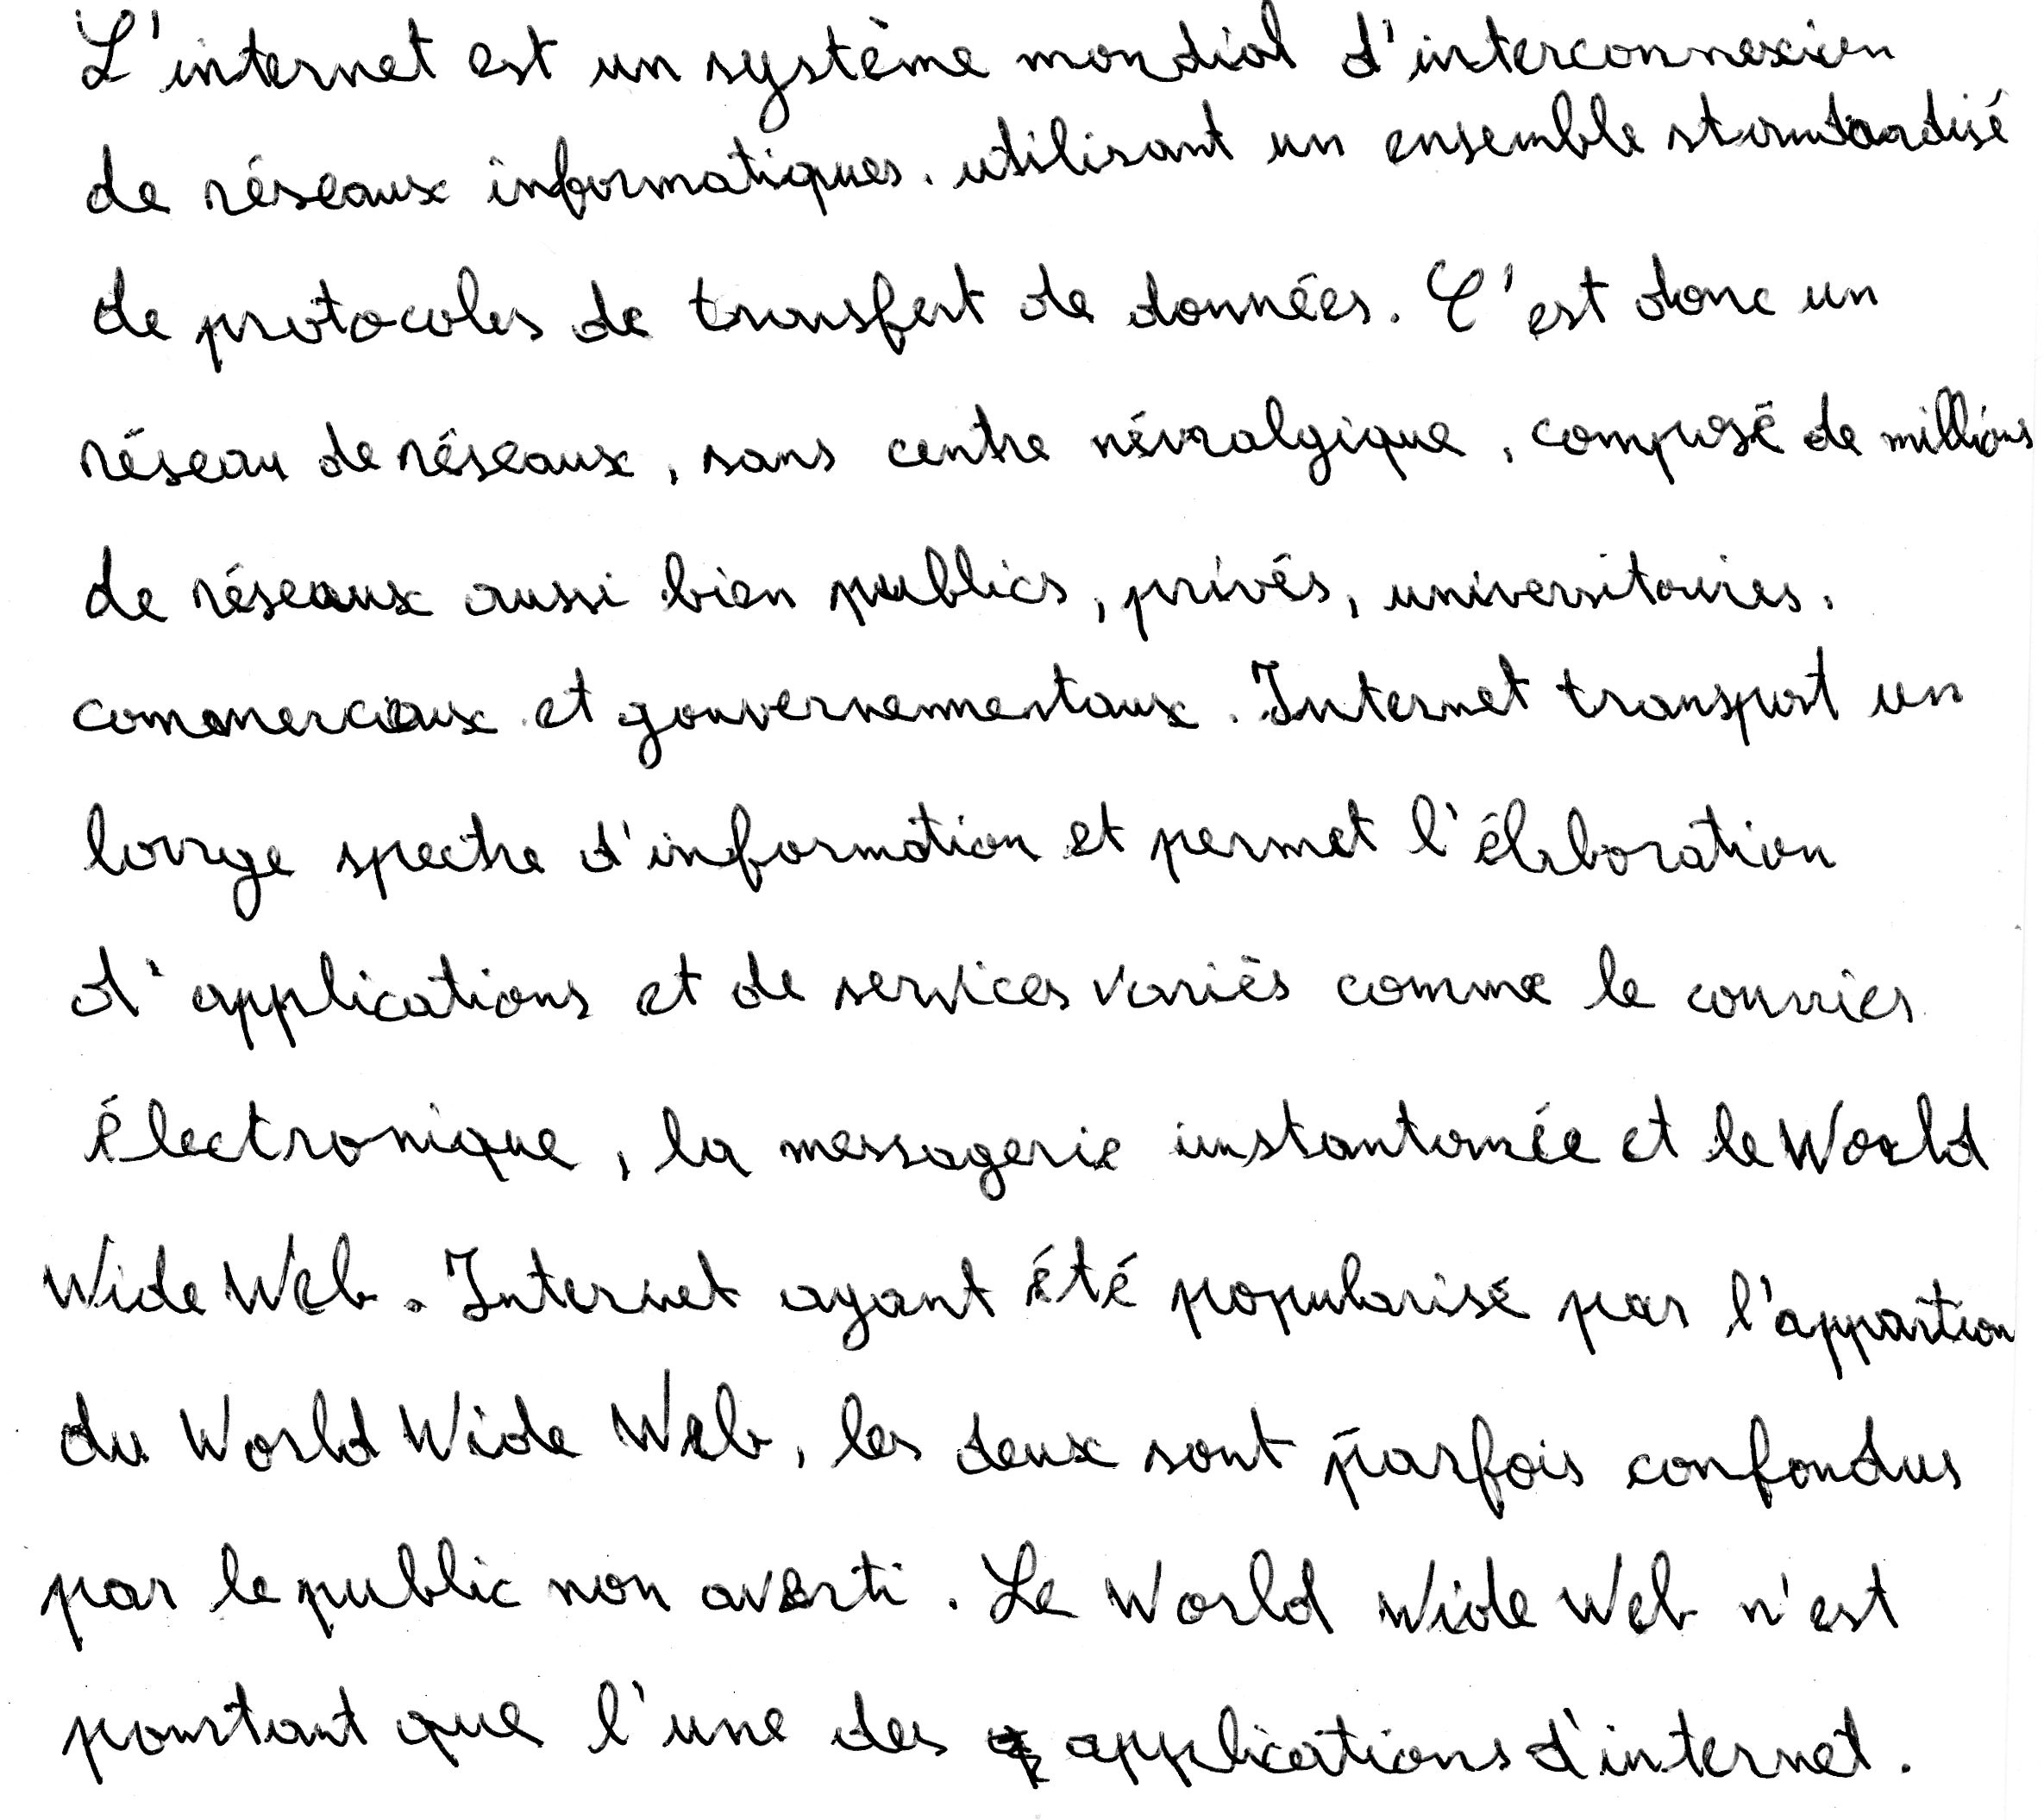 L'internet est un système mondial d'interconnexion
de réseaux informatiques. utilisant un ensemble standardisé
de protocoles de transfert de données. C'est donc un
réseau de réseaux, sans centre névralgique, composé de millions
de réseaux aussi bien publics, privés, universitaires,
commerciaux et gouvernementaux. Internet transport un
large spectre d'information et permet l'élaboration
d'applications et de services variés comme le courrier
électronique, la messagerie instantanée et le World
Wide Web. Internet ayant été popularisé par l'appartion
du World Wide Web, les deux sont parfois confondus
par le public non averti. Le World Wide Web n'est
pourtant que l'une des applications d'internet.